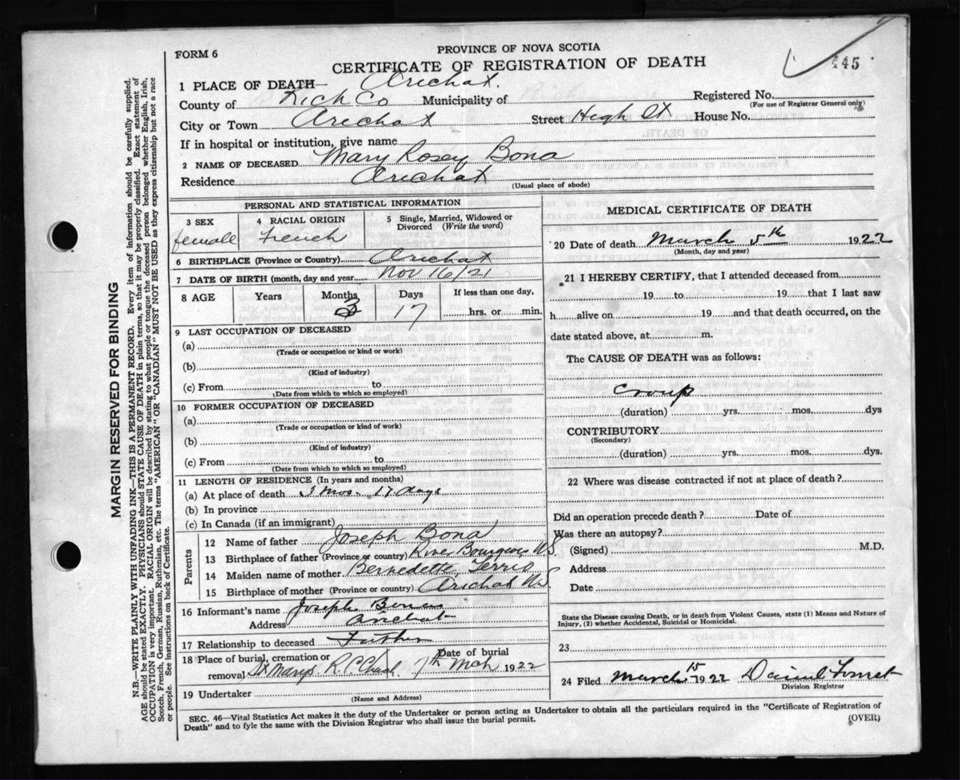 FORM 6
PROVINCE OF NOVA SCOTIA
CERTIFICATE OF REGISTRATION OF DEATH
445
1 PLACE OF DEATH— Arichat.
County of Rich Co Municipality of
Registered No.
(For use of Registrar General only)
City or Town Arichat Street High St House No.
If in hospital or institution, give name
2 NAME OF DECEASED Mary Rosey Bona
Residence Arichat
(Usual place of abode)
PERSONAL AND STATISTICAL INFORMATION
3 SEX
female
4 RACIAL ORIGIN
French
5 Single, Married, Widowed or Divorced (Write the word)
6 BIRTHPLACE (Province or Country) Arichat
7 DATE OF BIRTH (month, day and year) Nov 16/21
8 AGE Years Months Days If less than one day,
3 17 hrs. or min.
9 LAST OCCUPATION OF DECEASED
(a)
(Trade or occupation or kind or work)
(b)
(Kind of industry)
(c) From to
(Date from which to which so employed)
10 FORMER OCCUPATION OF DECEASED
(a)
(Trade or occupation or kind of work)
(b)
(Kind of industry)
(c) From to
(Date from which to which so employed)
11 LENGTH OF RESIDENCE (In years and months)
(a) At place of death 3 mos. 17 days
(b) In province
(c) In Canada (if an immigrant)
Parents
12 Name of father Joseph Bona
13 Birthplace of father (Province or country) River Bourgeois N.S.
14 Maiden name of mother Bernedette
15 Birthplace of mother (Province or country) Arichat N.S.
16 Informant's name Joseph Bona
Address Arichat
17 Relationship to deceased Father
18 Place of burial, cremation or removal St Marys R.C. Date of burial 7th Mch 1922
19 Undertaker
(Name and Address)
MEDICAL CERTIFICATE OF DEATH
20 Date of death March 5th 1922
(Month, day and year)
21 I HEREBY CERTIFY, that I attended deceased from
19 to 19 that I last saw
h alive on 19 and that death occurred, on the
date stated above, at m.
The CAUSE OF DEATH was as follows:
Croup
(duration) yrs. mos. dys
CONTRIBUTORY
(Secondary)
(duration) yrs. mos. dys.
22 Where was disease contracted if not at place of death?
Did an operation precede death? Date of
Was there an autopsy?
(Signed) M.D.
Address
Date
State the Disease causing Death, or in death from Violent Causes, state (1) Means and Nature of
Injury, (2) whether Accidental, Suicidal or Homicidal.
23
24 Filed March 15 1922
Division Registrar
SEC. 46—Vital Statistics Act makes it the duty of the Undertaker or person acting as Undertaker to obtain all the particulars required in the "Certificate of Registration of
Death" and to fyle the same with the Division Registrar who shall issue the burial permit.
(OVER)
MARGIN RESERVED FOR BINDING
N.B.—WRITE PLAINLY WITH UNFADING INK—THIS IS A PERMANENT RECORD. Every item of information should be carefully supplied.
AGE should be stated EXACTLY. PHYSICIANS should STATE CAUSE OF DEATH in plain terms, so that it may be properly classified. Exact statement of
OCCUPATION is very important. RACIAL ORIGIN will be described by stating to what people or tongue the deceased person belonged whether English, Irish,
Scotch, French, German, Russian, Ruthenian, etc. The terms "AMERICAN" OR "CANADIAN" MUST NOT BE USED as they express citizenship but not a race
or people. See instructions on back of Certificate.